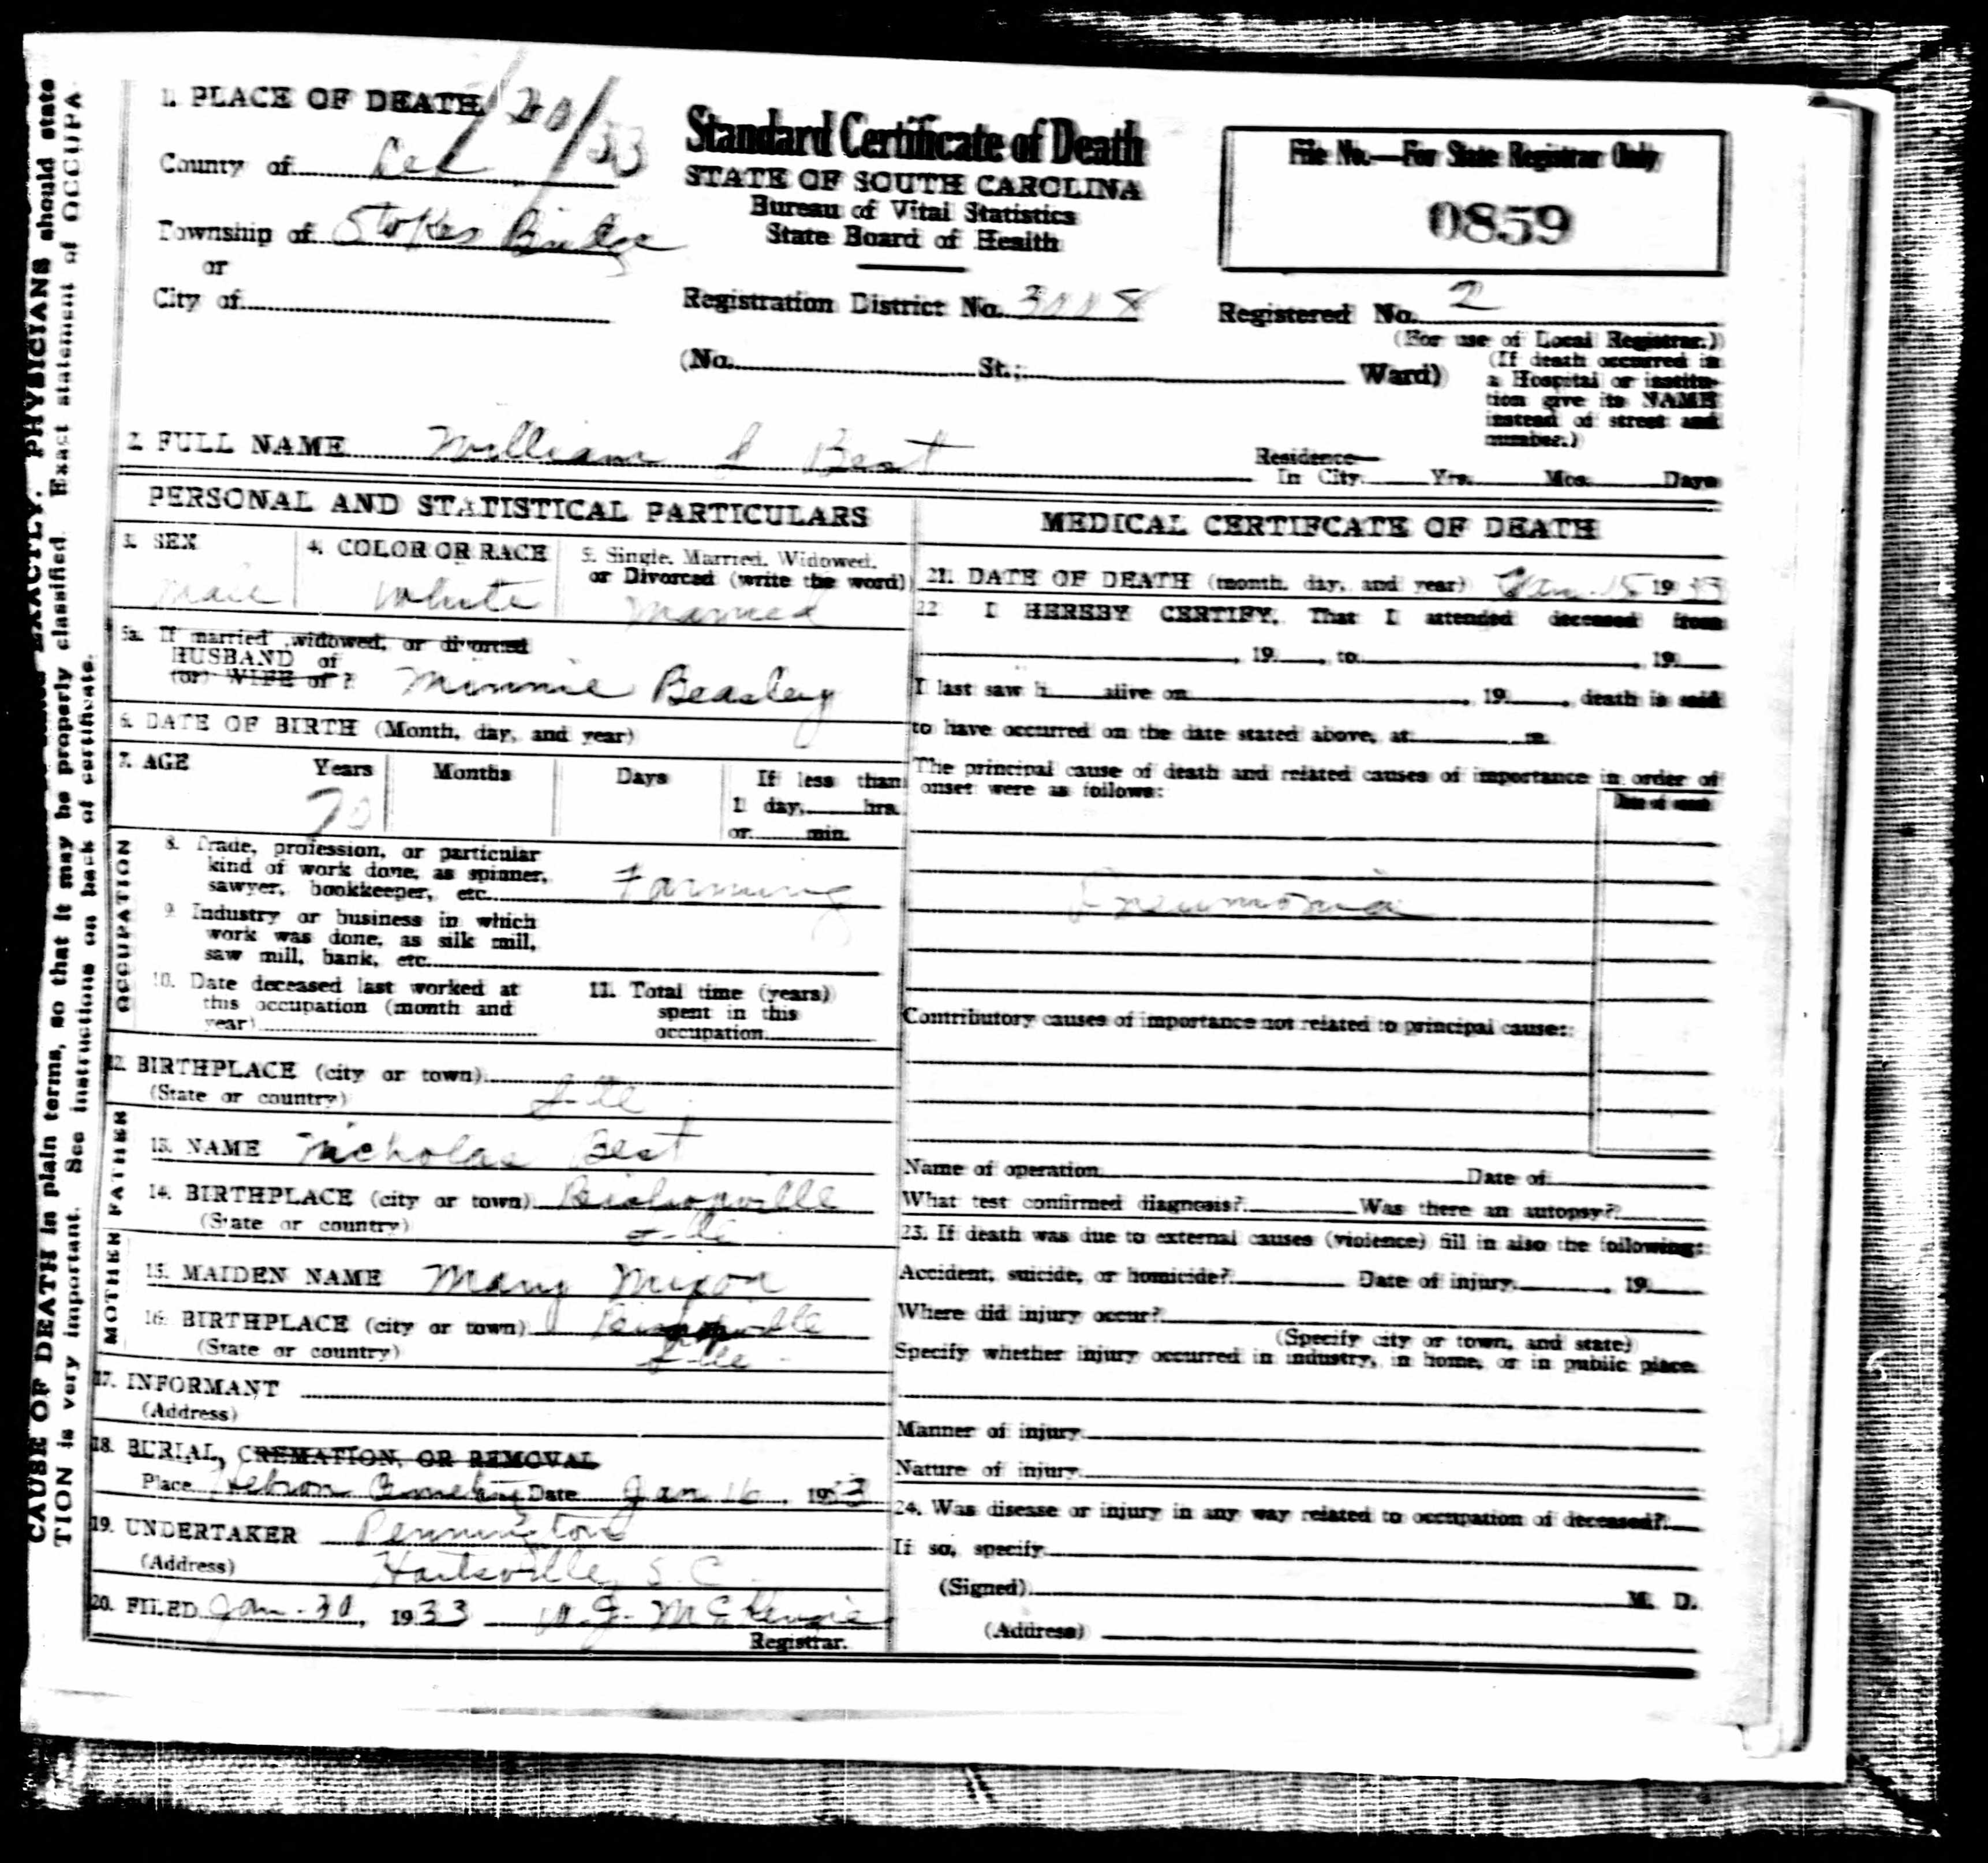 CAUSE OF DEATH in plain terms, so that it may be properly classified. Exact statement of OCCUPA-
TION is very important. See instructions on back of certificate.
EXACTLY. PHYSICIANS should state
1. PLACE OF DEATH
County of Lee
Township of Stokes Bridge
or
City of
Standard Certificate of Death
STATE OF SOUTH CAROLINA
Bureau of Vital Statistics
State Board of Health
File No.—For State Registrar Only
0859
Registration District No.
Registered No. 2
(For use of Local Registrar.)
(No. St.; Ward)
(If death occurred in
a Hospital or institu-
tion give its NAME
instead of street and
number.)
2. FULL NAME William Best
Residence—
In City Yrs. Mos. Days
PERSONAL AND STATISTICAL PARTICULARS
3. SEX
Male
4. COLOR OR RACE
White
5. Single, Married, Widowed,
or Divorced (write the word)
Married
5a. If married, widowed, or divorced
HUSBAND of
(or) WIFE of ?
Minnie Beasley
6. DATE OF BIRTH (Month, day, and year)
7. AGE Years Months Days If less than
1 day, hrs.
or min.
70
8. Trade, profession, or particular
kind of work done, as spinner,
sawyer, bookkeeper, etc. Farming
9. Industry or business in which
work was done, as silk mill,
saw mill, bank, etc.
10. Date deceased last worked at
this occupation (month and
year)
11. Total time (years)
spent in this
occupation
OCCUPATION
12. BIRTHPLACE (city or town)
(State or country)
FATHER
13. NAME Nicholas Best
14. BIRTHPLACE (city or town) Bishopville
(State or country)
MOTHER
15. MAIDEN NAME Mary Mixon
16. BIRTHPLACE (city or town) Bishopville
(State or country)
17. INFORMANT
(Address)
18. BURIAL, CREMATION, OR REMOVAL
Place Hebron Cemetery Date Jan 16, 1933
19. UNDERTAKER Pennington
(Address) Hartsville, S. C.
20. FILED Jan. 30, 1933 McKenzie
Registrar.
MEDICAL CERTIFCATE OF DEATH
21. DATE OF DEATH (month, day, and year) Jan. 15 1933
22 I HEREBY CERTIFY, That I attended deceased from
, 19 , to , 19
I last saw h alive on , 19 , death is said
to have occurred on the date stated above, at m.
The principal cause of death and related causes of importance in order of
onset were as follows:
Date of onset
Pneumonia
Contributory causes of importance not related to principal cause:
Name of operation Date of
What test confirmed diagnosis? Was there an autopsy?
23. If death was due to external causes (violence) fill in also the following:
Accident, suicide, or homicide? Date of injury , 19
Where did injury occur?
(Specify city or town, and state)
Specify whether injury occurred in industry, in home, or in public place.
Manner of injury
Nature of injury
24. Was disease or injury in any way related to occupation of deceased?
If so, specify
(Signed) M. D.
(Address)